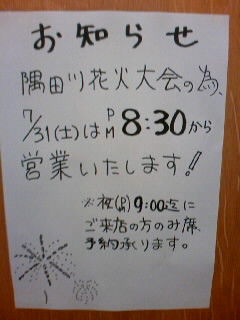 お知らせ
隅田川花火大会の為、
7/31(土)はPM8:30から
営業いたします!
※夜(PM)9:00迄に
ご来店の方のみ席
予約承ります。